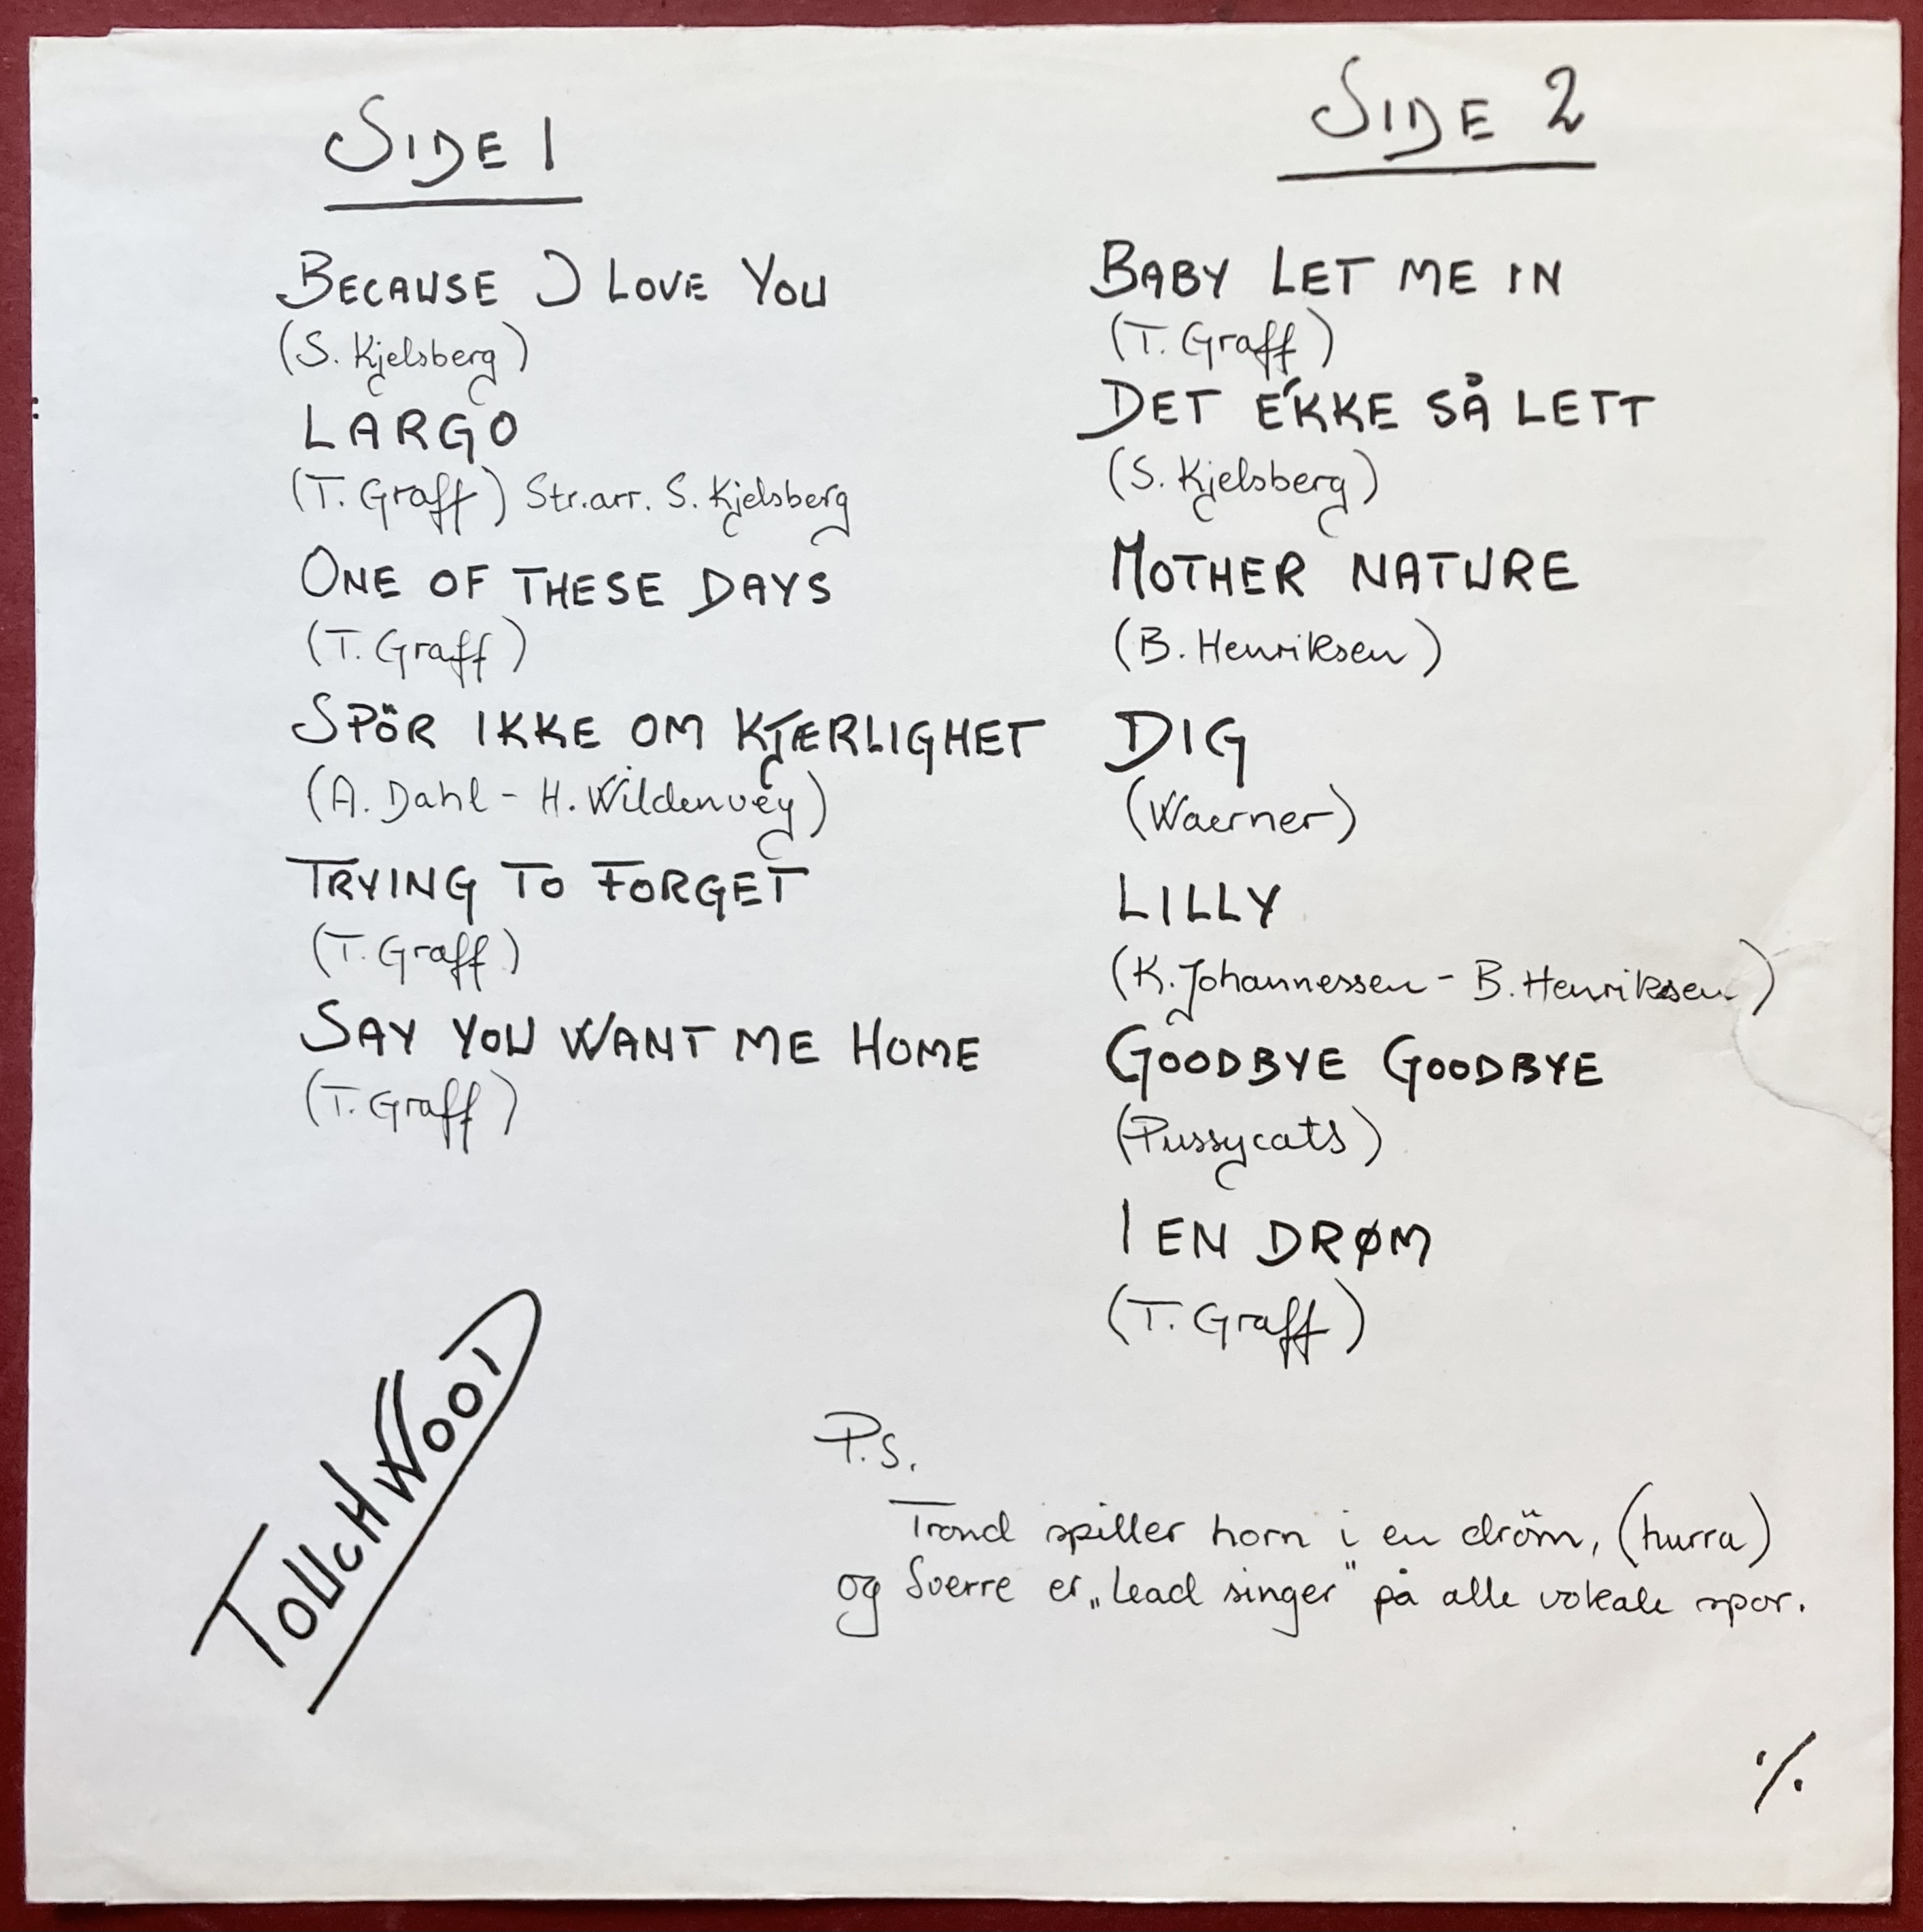 SIDE 1
BECAUSE I LOVE YOU
(S. Kjelsberg)
LARGO
(T. Graff) Str.arr. S. Kjelsberg
ONE OF THESE DAYS
(T. Graff)
SPÖR IKKE OM KJÆRLIGHET
(A. Dahl - H. Wildenvey)
TRYING TO FORGET
(T. Graff)
SAY YOU WANT ME HOME
(T. Graff)
SIDE 2
BABY LET ME IN
(T. Graff)
DET E'KKE SÅ LETT
(S. Kjelsberg)
MOTHER NATURE
(B. Henriksen)
DIG
(Waerner)
LILLY
(K. Johannessen - B. Henriksen)
GOODBYE GOODBYE
(Pussycats)
I EN DRØM
(T. Graff)
TOUCHWOOD
P.S.
Trond spiller horn i en dröm, (hurra)
og Sverre er „lead singer" på alle vokale spor.
·/.